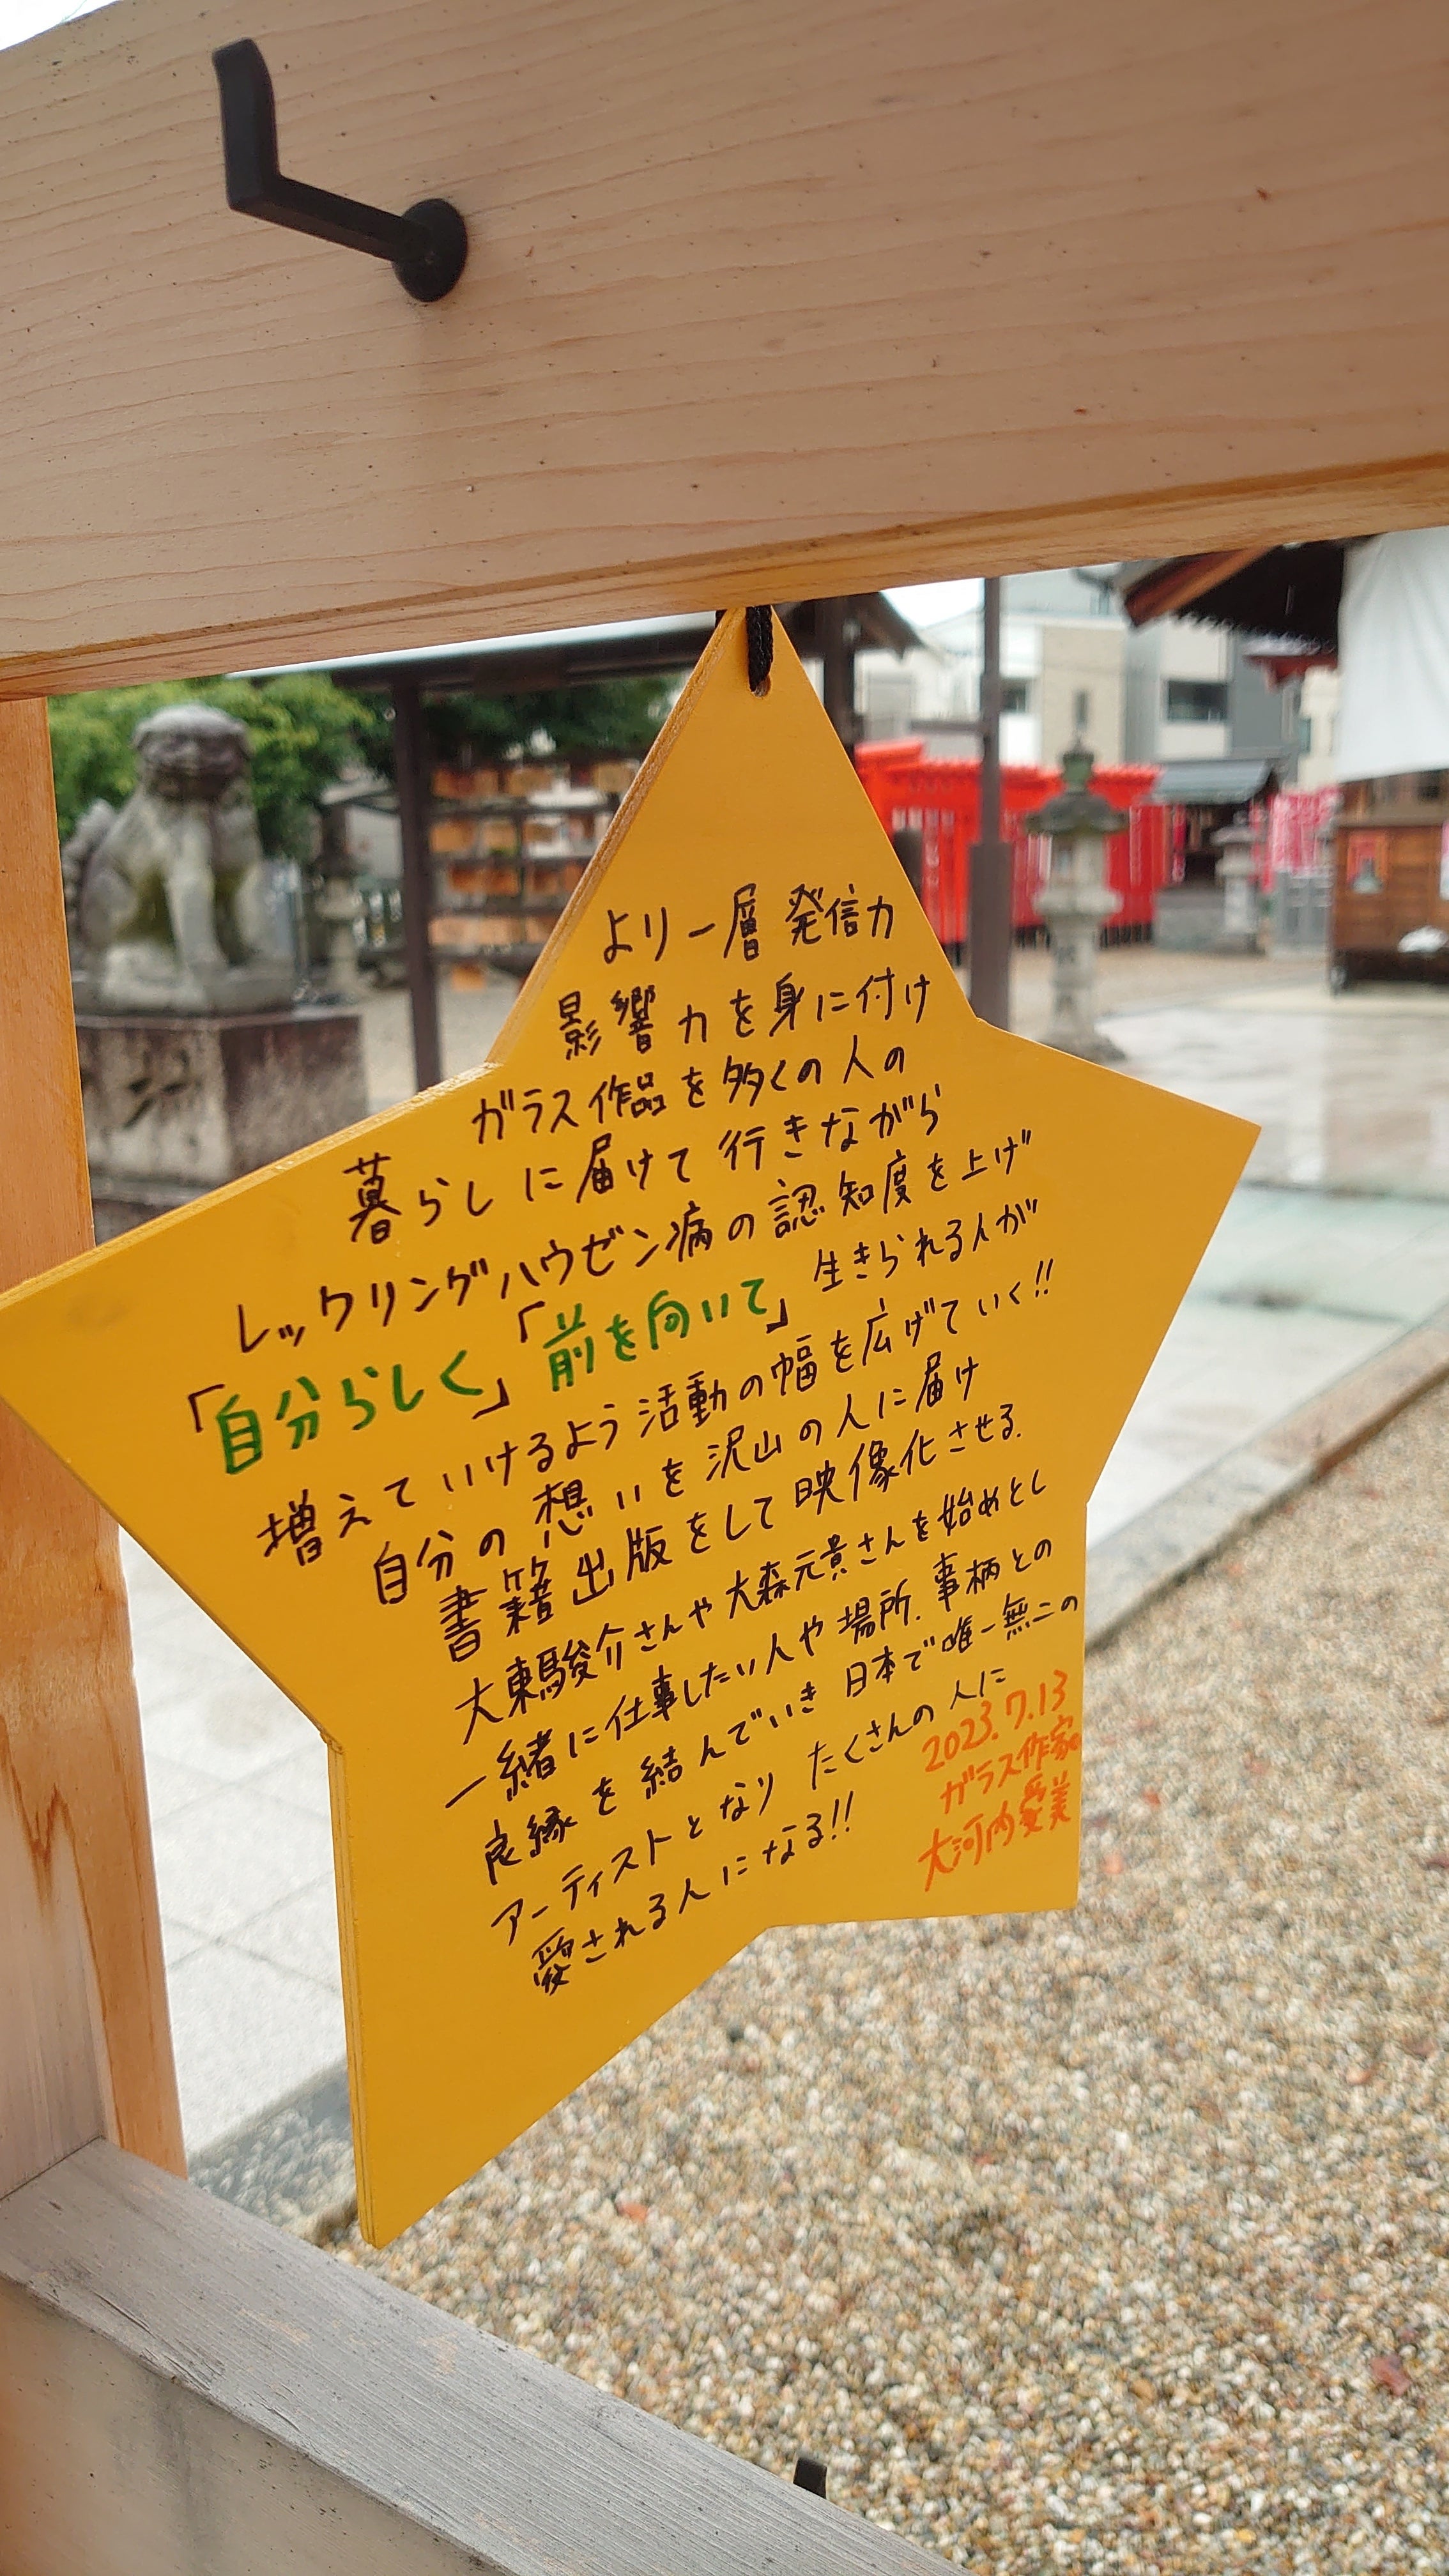 より一層 発信力
影響力を身に付け
ガラス作品を多くの人の
暮らしに届けて行きながら
レックリングハウゼン病の認知度を上げ
「自分らしく」「前を向いて」生きられる人が
増えていけるよう活動の幅を広げていく!!
自分の想いを沢山の人に届け
書籍出版をして映像化させる.
大東駿介さんや大森元貴さんを始めとし
一緒に仕事したい人や場所.事柄との
良縁を結んでいき 日本で唯一無二の
アーティストとなり たくさんの人に
愛される人になる!!
2023.7.13
ガラス作家
大河内愛美